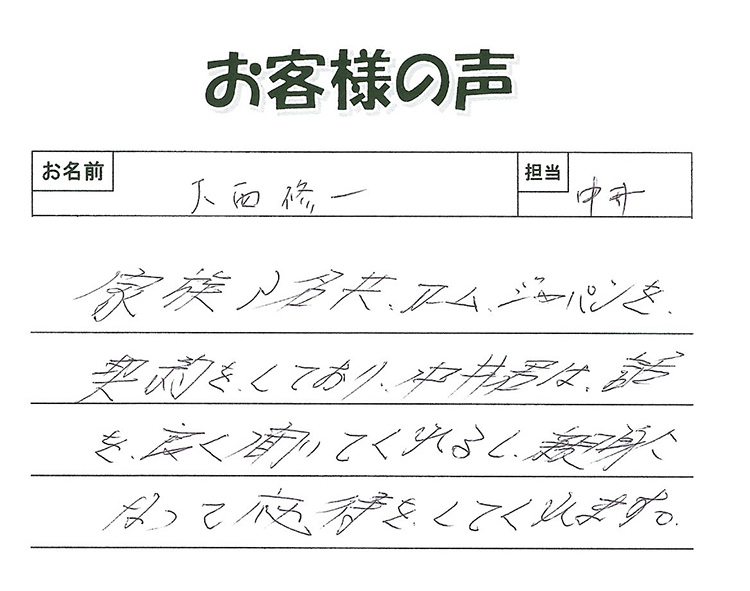 お客様の声
お名前 大西修一 担当 中井
家族八名共、エーム、ジャパンを、
契約を、しており、中井君は、話
を、良く聞いてくれるし、親身に
なって応待を、してくれます。